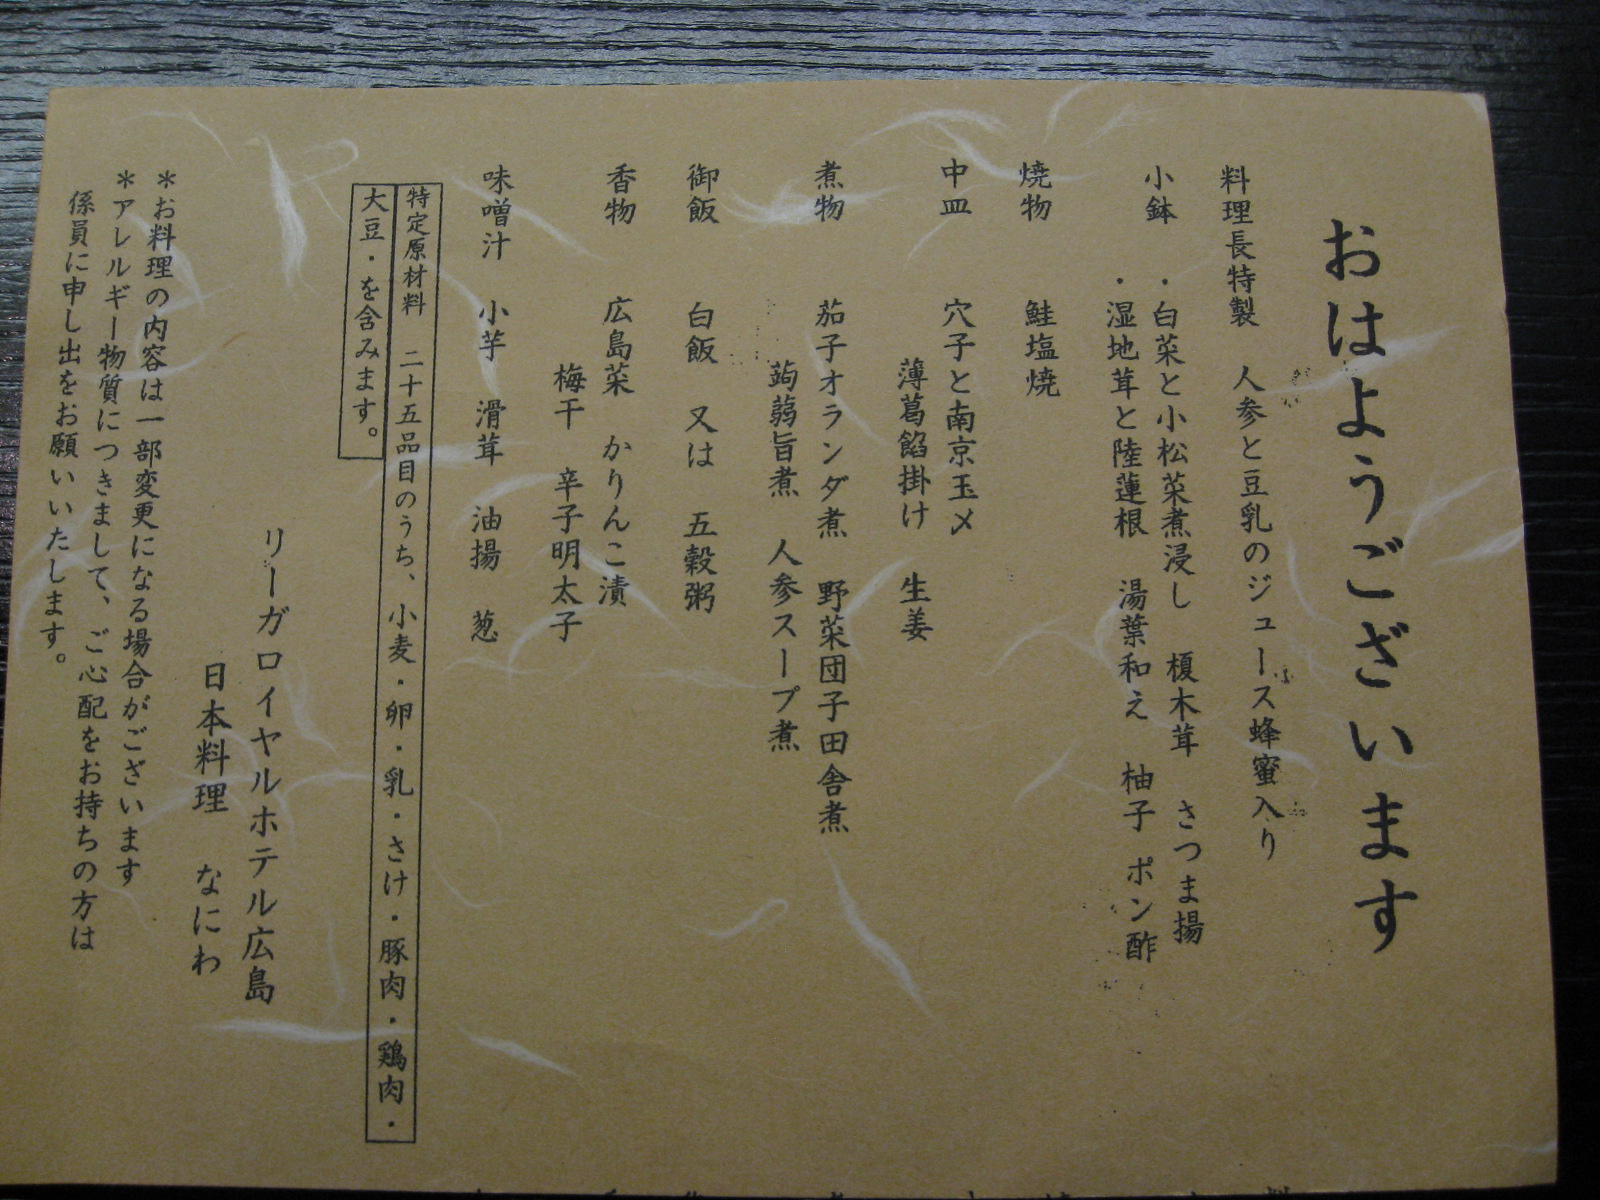 おはようございます
料理長特製　人参と豆乳のジュース蜂蜜入り
小鉢　・白菜と小松菜煮浸し　榎木茸　さつま揚
・湿地茸と陸蓮根　湯葉和え　柚子　ポン酢
焼物　鮭塩焼
中皿　穴子と南京玉〆
薄葛餡掛け　生姜
煮物　茄子オランダ煮　野菜団子田舎煮
蒟蒻旨煮　人参スープ煮
御飯　白飯　又は　五穀粥
香物　広島菜　かりんこ漬
梅干　辛子明太子
味噌汁　小芋　滑茸　油揚　葱
特定原材料　二十五品目のうち、小麦・卵・乳・さけ・豚肉・鶏肉・
大豆・を含みます。
リーガロイヤルホテル広島
日本料理　なにわ
＊お料理の内容は一部変更になる場合がございます
＊アレルギー物質につきまして、ご心配をお持ちの方は
係員に申し出をお願いいたします。